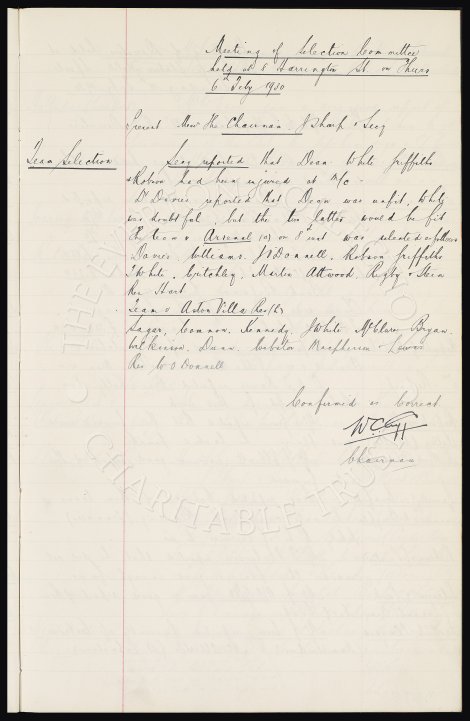 Meeting of Selection Committee
held at 8 Harrington St. on Thurs
6th Feby 1930
Present Messrs The Chairman J Sharp & Secy
Team Selection
Secy reported that Dean White Griffiths
& Robson had been injured at M/C -
Dr Davies reported that Dean was unfit, White
was doubtful, but the two latter would be fit
The team v Arsenal (a) on 8th inst was selected as follows
Davies, Williams. J O'Donnell, Robson Griffiths
White, Critchley, Martin Attwood, Rigby & Stein
Res Hart
Team v Aston Villa Res (h)
Sagar, Common, Kennedy, J White McClure Bryan
Wilkinson, Dunn Webster Macpherson & Lewis
Res W O'Donnell
Confirmed as Correct
Chairman
THE EV
CHARITABLE TRUST